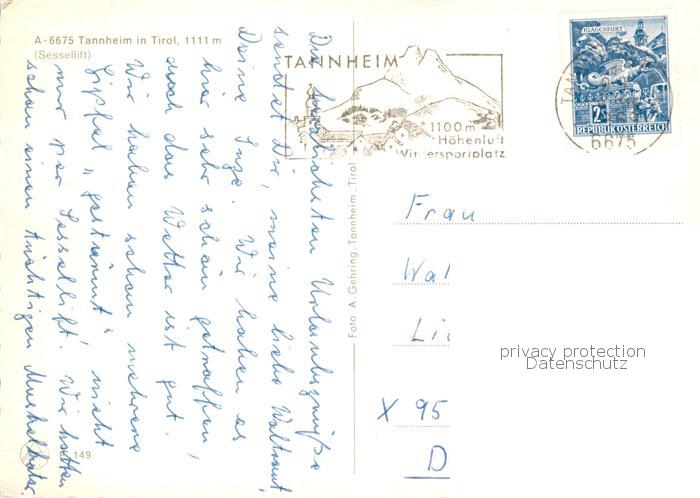 A-6675 Tannheim in Tirol, 1111 m
(Sessellift)
Die herzlichsten Urlaubsgrüße
sendet Dir, meine liebe Waltraut,
Deine Inge. Wir haben es
hier sehr schön getroffen,
auch das Wetter ist gut.
Wir haben schon mehrere
Gipfel "gestürmt" nicht
nur per Sessellift! Wir hatten
schon einen tüchtigen Muskelkater.
149
Foto A. Gehring, Tannheim, Tirol
TANNHEIM
1100 m
Höhenluft
Wintersportplatz
KLAGENFURT
2S
REPUBLIK ÖSTERREICH
6675
Frau
Wal
Li
X 95
D
privacy protection
Datenschutz